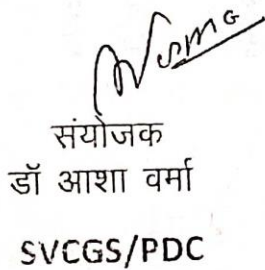 संयोजक
डॉ आशा वर्मा
SVCGS/PDC